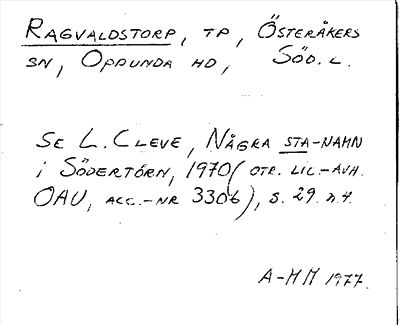 RAGVALDSTORP, TP, ÖSTERÅKERS
SN, OPPUNDA HD, SÖD. L.
SE L. CLEVE, NÅGRA STA-NAMN
I SÖDERTÖRN, 1970 (OTR. LIC.-AVH.
OAU, ACC.-NR 3306), S. 29 n.4.
A-MM 1977.